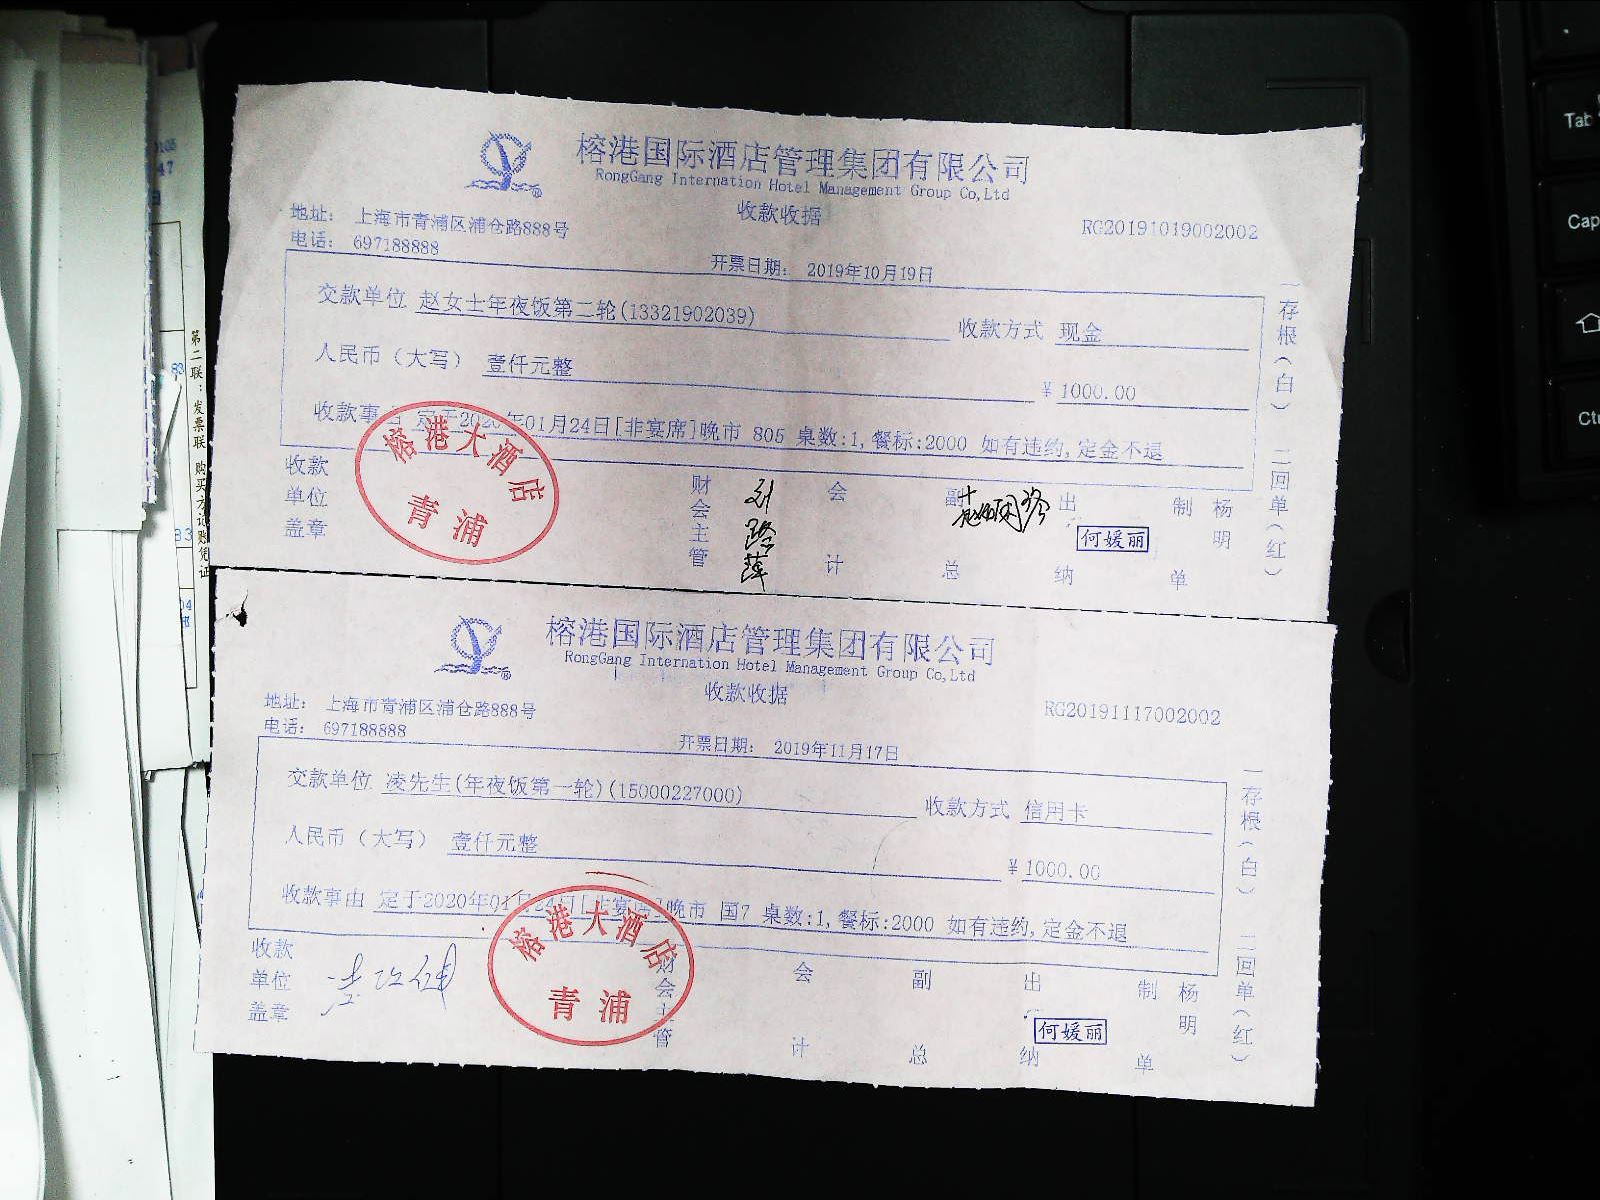 榕港国际酒店管理集团有限公司
RongGang Internation Hotel Management Group Co,Ltd
收款收据
地址： 上海市青浦区浦仓路888号
RG20191019002002
电话： 697188888
开票日期： 2019年10月19日
交款单位 赵女士年夜饭第二轮(13321902039) 收款方式 现金
人民币（大写） 壹仟元整 ¥1000.00
收款事 定于2020年01月24日[非宴席]晚市 805 桌数:1,餐标:2000 如有违约,定金不退
收款单位盖章
榕港大酒店
青浦
财会主管
会计
副总
出纳 何媛丽
制单 杨明
一存根（白） 二回单（红）
榕港国际酒店管理集团有限公司
RongGang Internation Hotel Management Group Co,Ltd
收款收据
地址： 上海市青浦区浦仓路888号
RG20191117002002
电话： 697188888
开票日期： 2019年11月17日
交款单位 凌先生(年夜饭第一轮)(15000227000) 收款方式 信用卡
人民币（大写） 壹仟元整 ¥1000.00
收款事由 定于2020年01月24日[非宴席]晚市 国7 桌数:1,餐标:2000 如有违约,定金不退
收款单位盖章
榕港大酒店
青浦
财会主管
会计
副总
出纳 何媛丽
制单 杨明
一存根（白） 二回单（红）
第二联：发票联 购买方记账凭证
Tab
Cap